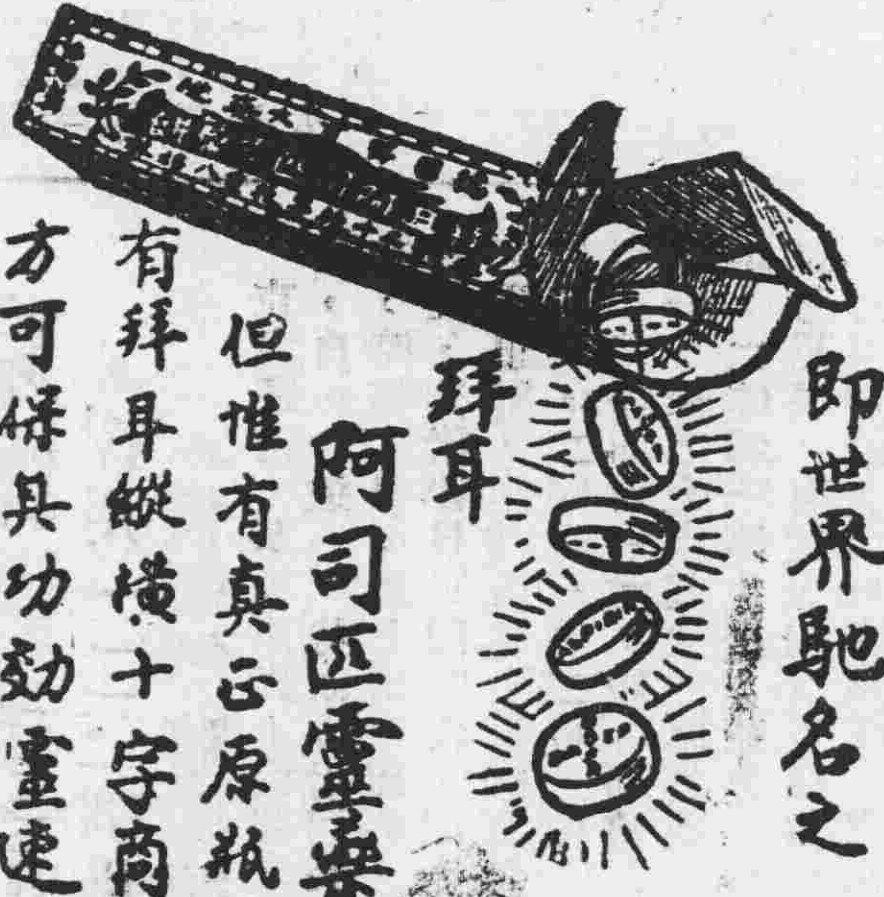 即世界馳名之
拜耳
阿司匹靈藥
但惟有真正原瓶
有拜耳縱橫十字商
方可保具功効靈速